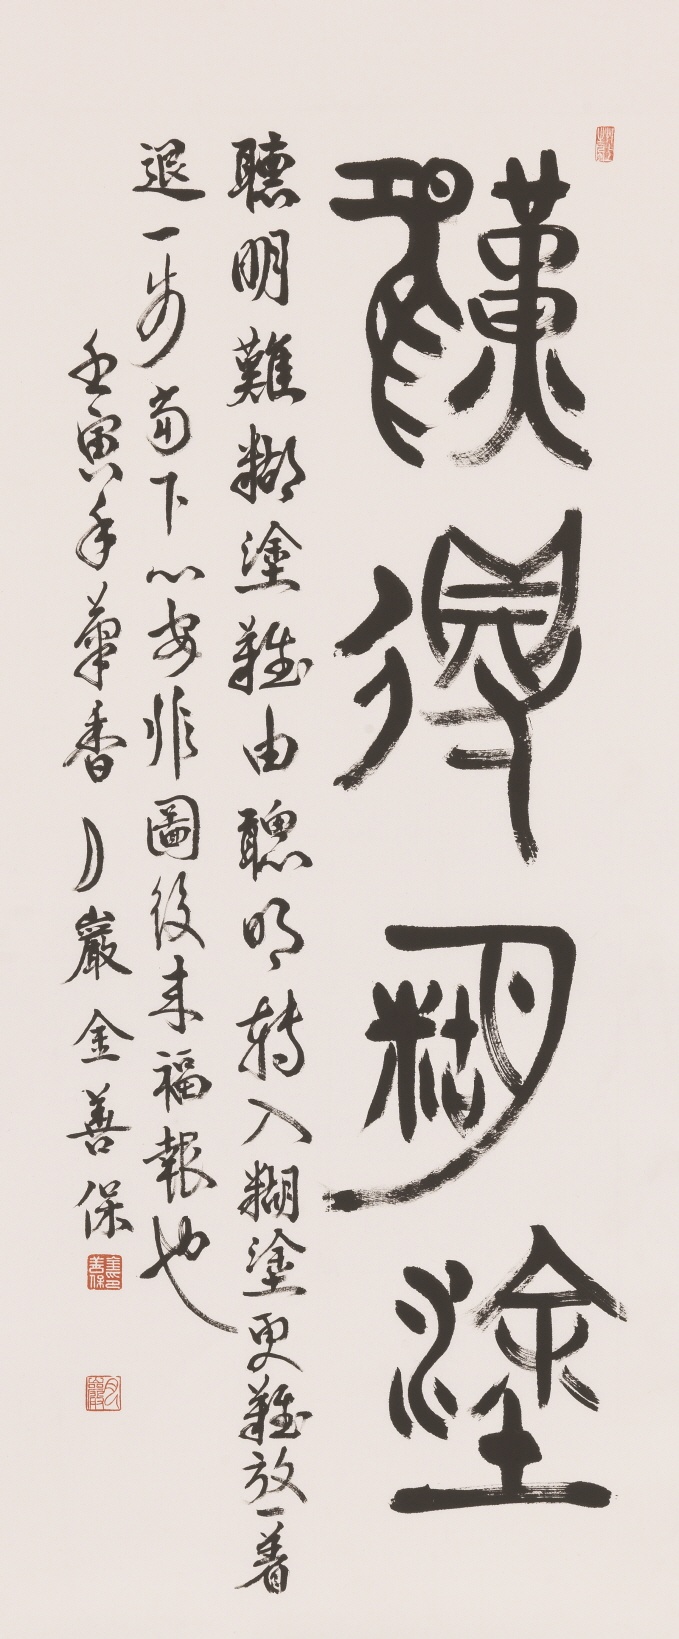 難得糊塗
聰明難糊塗難由聰明轉入糊塗更難放一着
退一步當下心安非圖後來福報也
壬寅年香月巖金善保